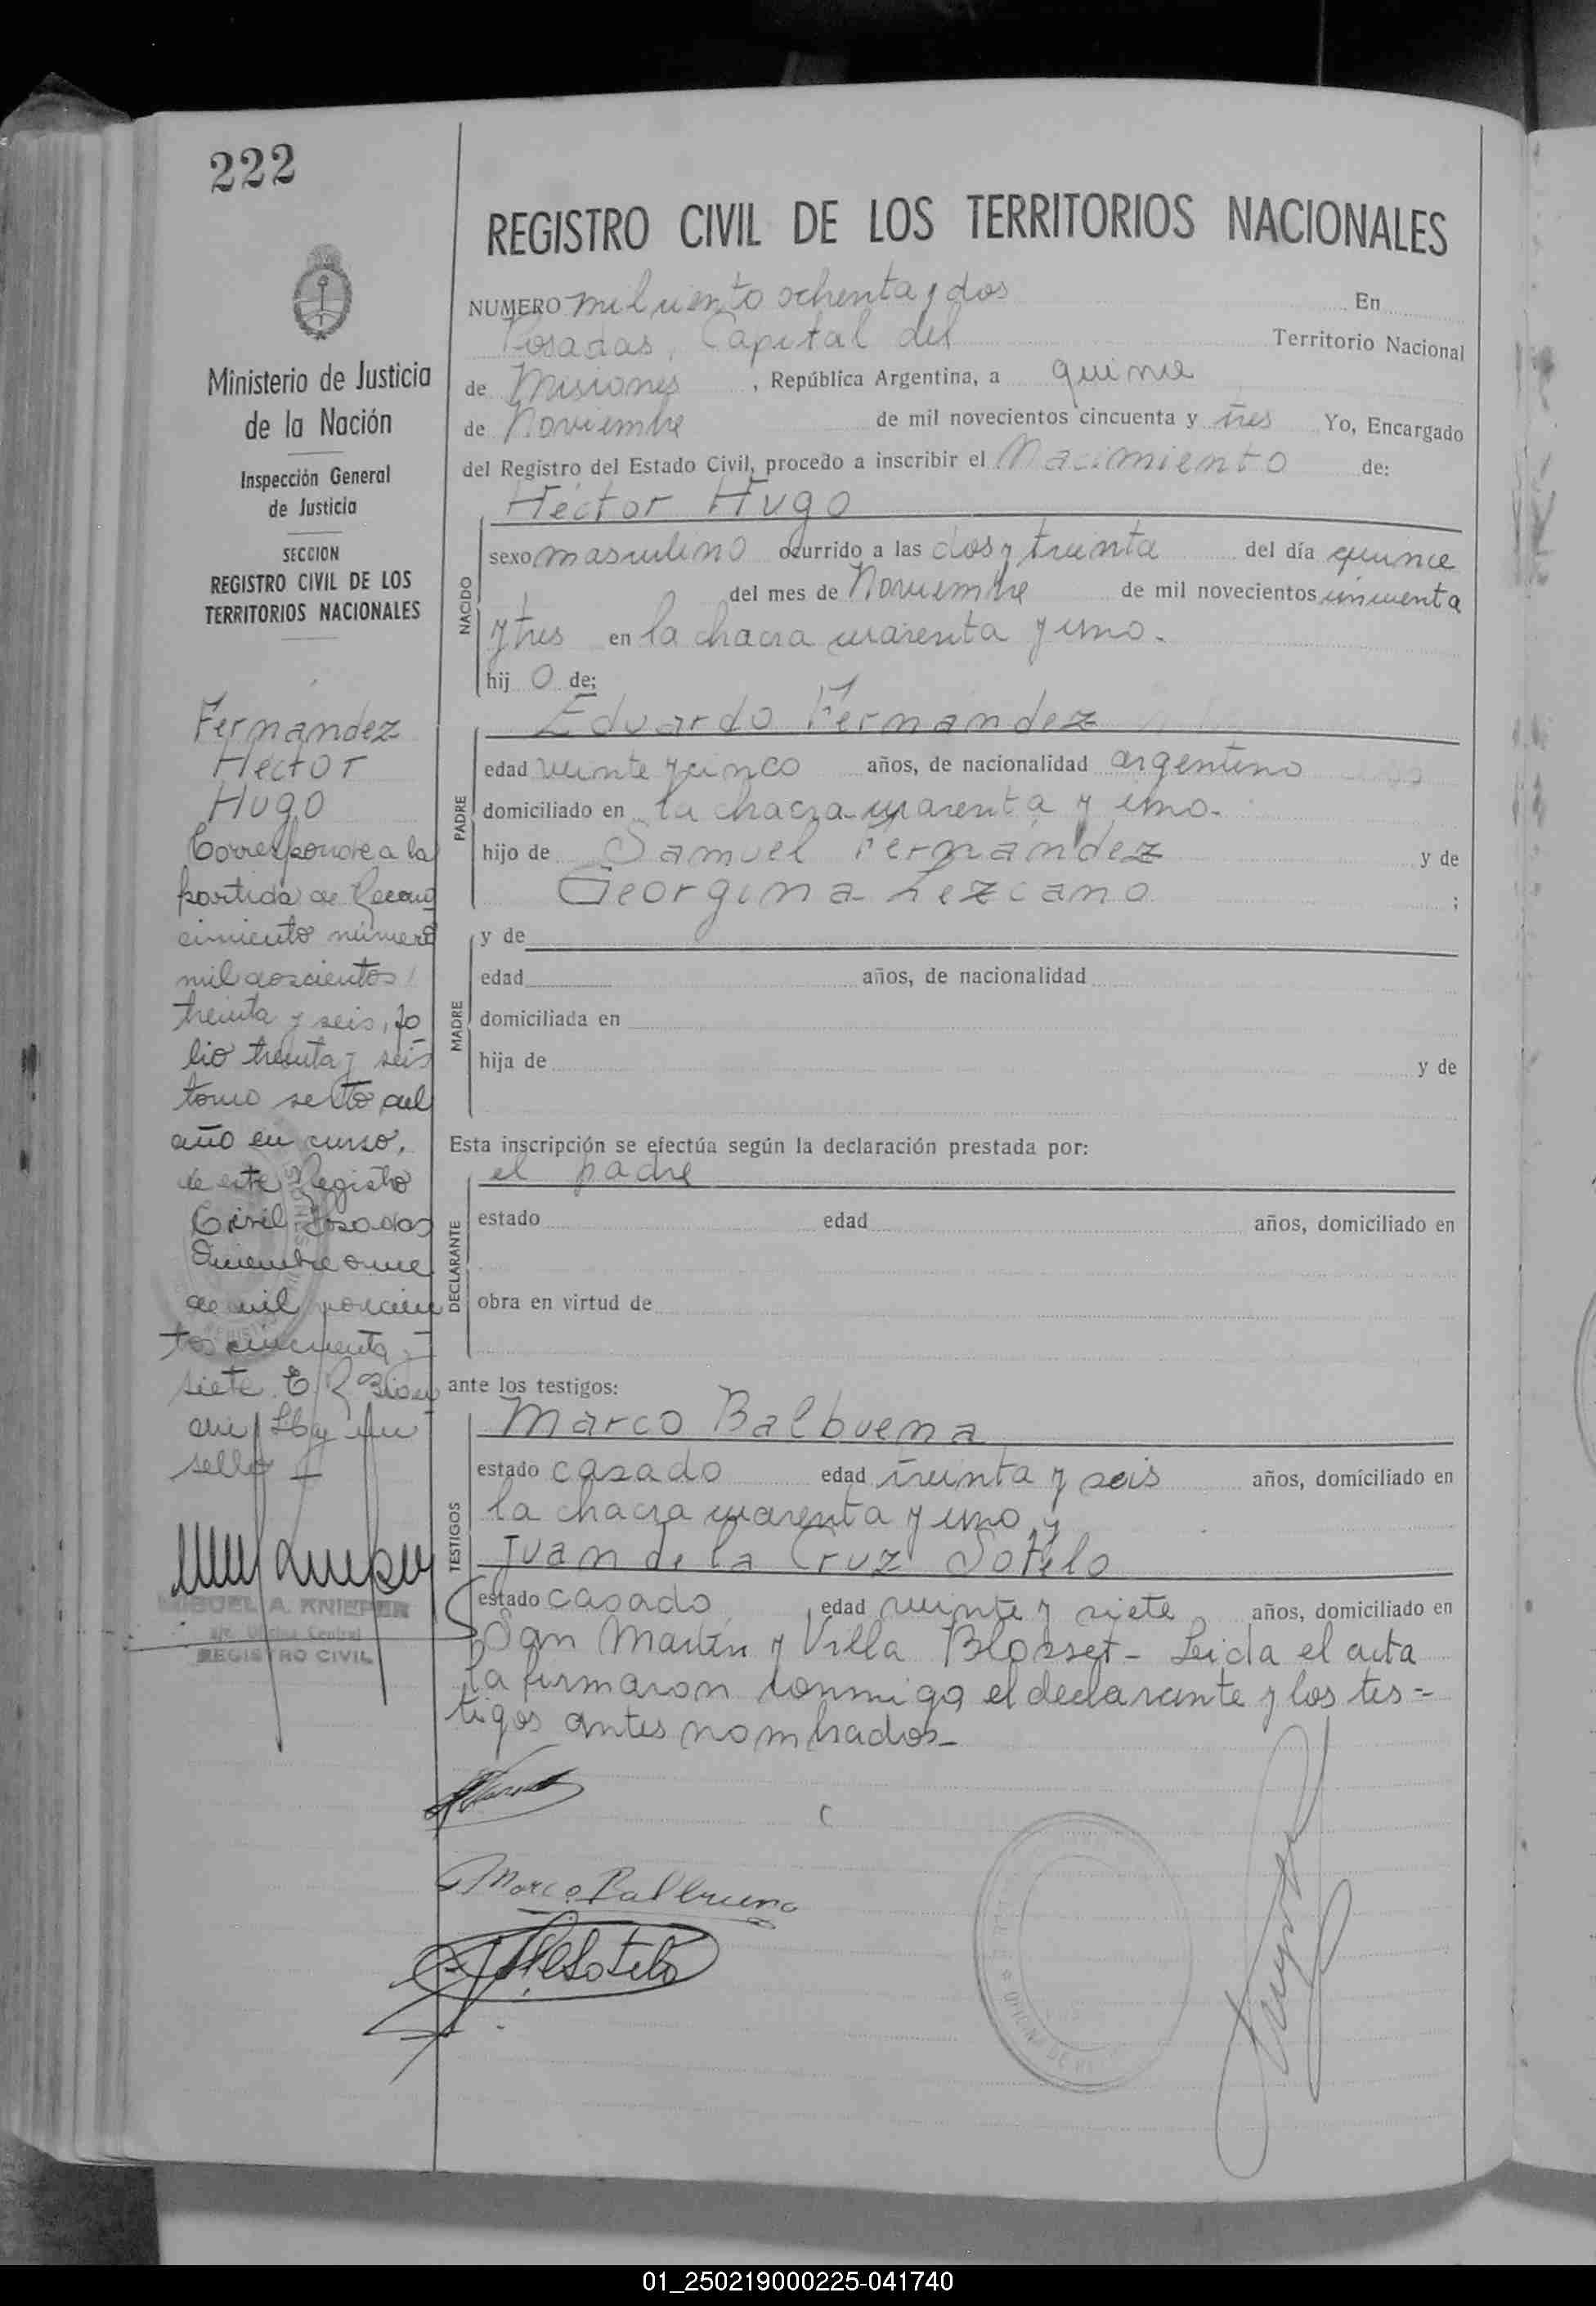 222
REGISTRO CIVIL DE LOS TERRITORIOS NACIONALES
Ministerio de Justicia
de la Nación
Inspección General
de Justicia
SECCION
REGISTRO CIVIL DE LOS
TERRITORIOS NACIONALES
Fernandez
Hector
Hugo
Corresponde a la
partida de Recono
cimiento número
mil doscientos
treinta y seis, fo
lio treinta y seis
tomo sexto del
año en curso,
de este Registro
Civil Posadas
Diciembre once
de mil novecien
tos cincuenta y
siete.
sello
MIGUEL A. KNIEPER
a/c. Oficina Central
REGISTRO CIVIL
NUMERO mil ciento ochenta y dos En
Posadas, Capital del Territorio Nacional
de Misiones, República Argentina, a quince
de Noviembre de mil novecientos cincuenta y tres Yo, Encargado
del Registro del Estado Civil, procedo a inscribir el Nacimiento de:
Héctor Hugo
NACIDO
sexo masculino ocurrido a las dos y treinta del día quince
del mes de Noviembre de mil novecientos cincuenta
y tres en la chacra cuarenta y uno.
hij o de:
Eduardo Fernandez
PADRE
edad veinte y cinco años, de nacionalidad argentino
domiciliado en la chacra cuarenta y uno.
hijo de Samuel Fernández y de
Georgina Lezcano ;
MADRE
y de
edad años, de nacionalidad
domiciliada en
hija de y de
Esta inscripción se efectúa según la declaración prestada por:
el padre
DECLARANTE
estado edad años, domiciliado en
obra en virtud de
ante los testigos:
Marco Balbuena
TESTIGOS
estado casado edad treinta y seis años, domiciliado en
la chacra cuarenta y uno y
Juan de la Cruz Sotelo
estado casado, edad veinte y siete, años, domiciliado en
San Martín y Villa Blosset - Leida el acta
la firmaron conmigo, el declarante y los tes=
tigos antes nombrados-
Marco Balbuena
Sotelo
01_250219000225-041740